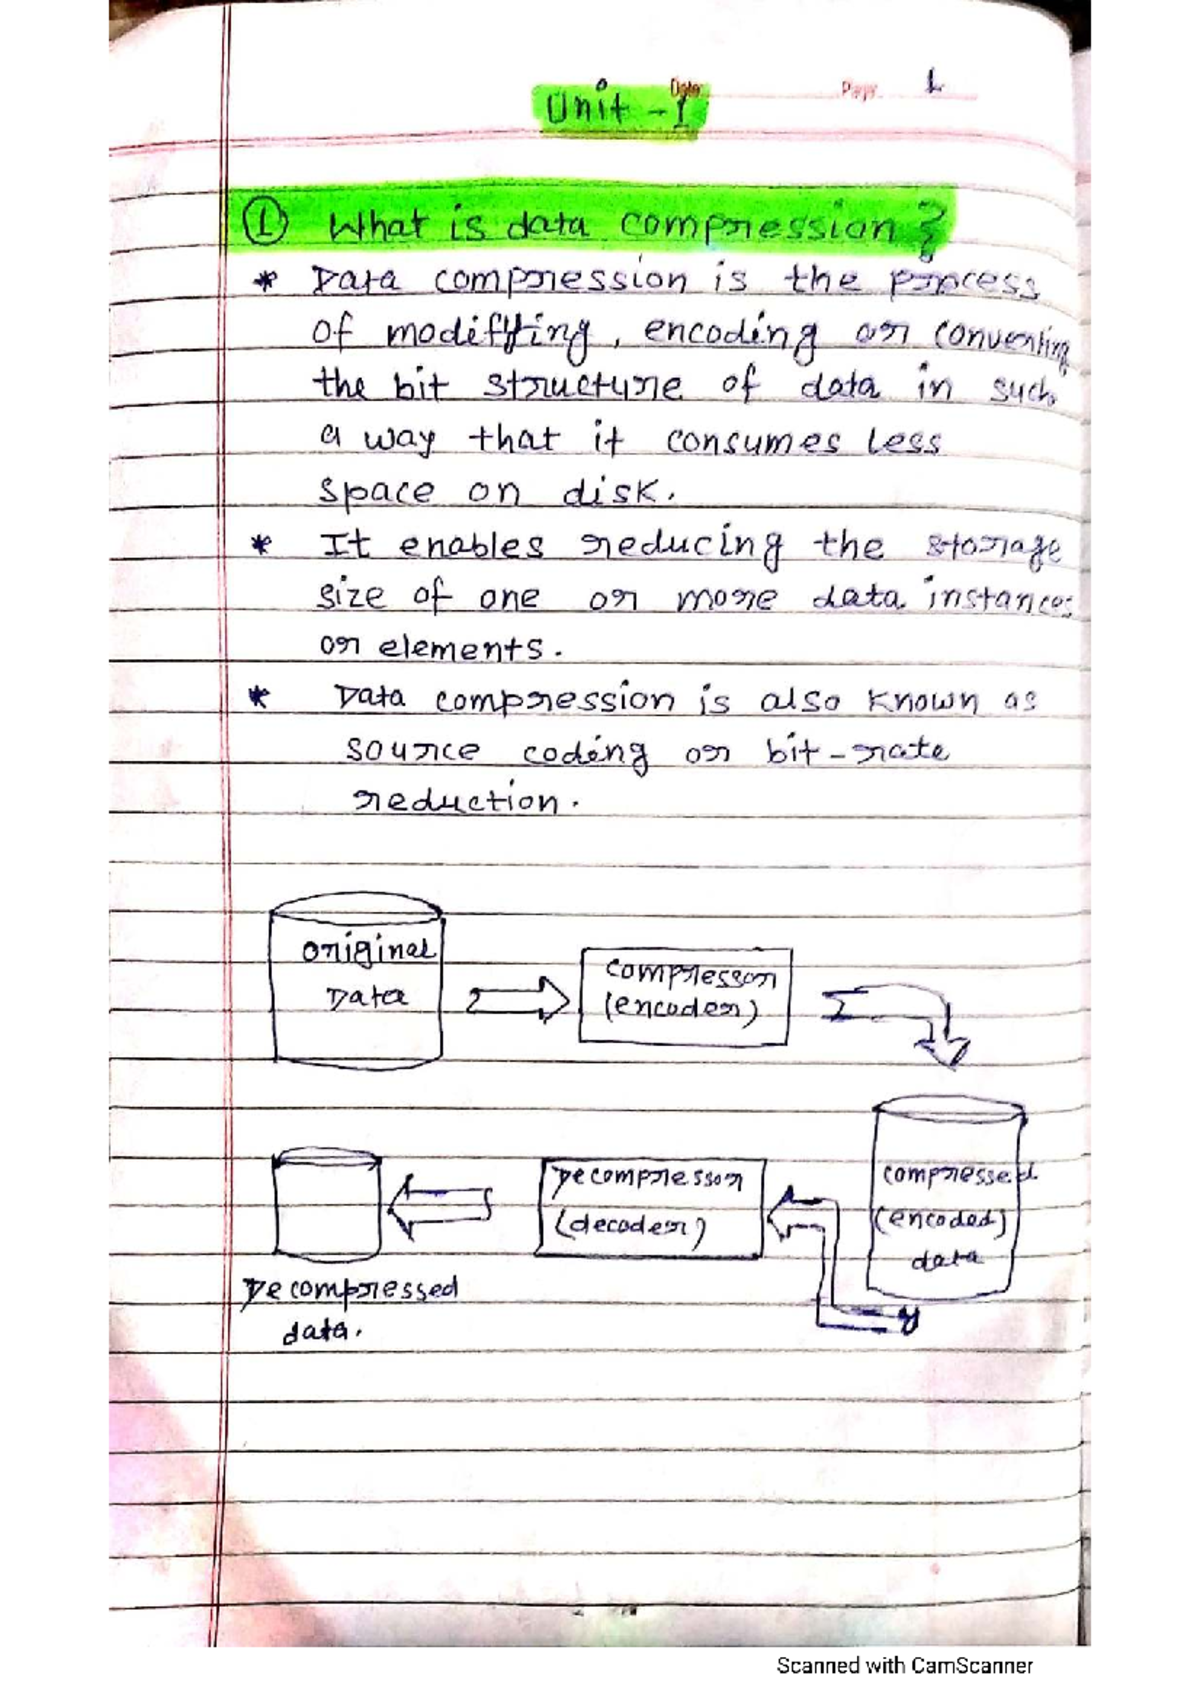 Date:
Page 1
Unit - 1
① What is data compression?
* Data compression is the process
of modifying, encoding or converting
the bit structure of data in such
a way that it consumes less
space on disk.
* It enables reducing the storage
size of one or more data instances
or elements.
* Data compression is also known as
source coding or bit-rate
reduction.
original
Data
compressor
(encoder)
compressed
(encoded)
data
Decompressor
(decoder)
Decompressed
data.
Scanned with CamScanner